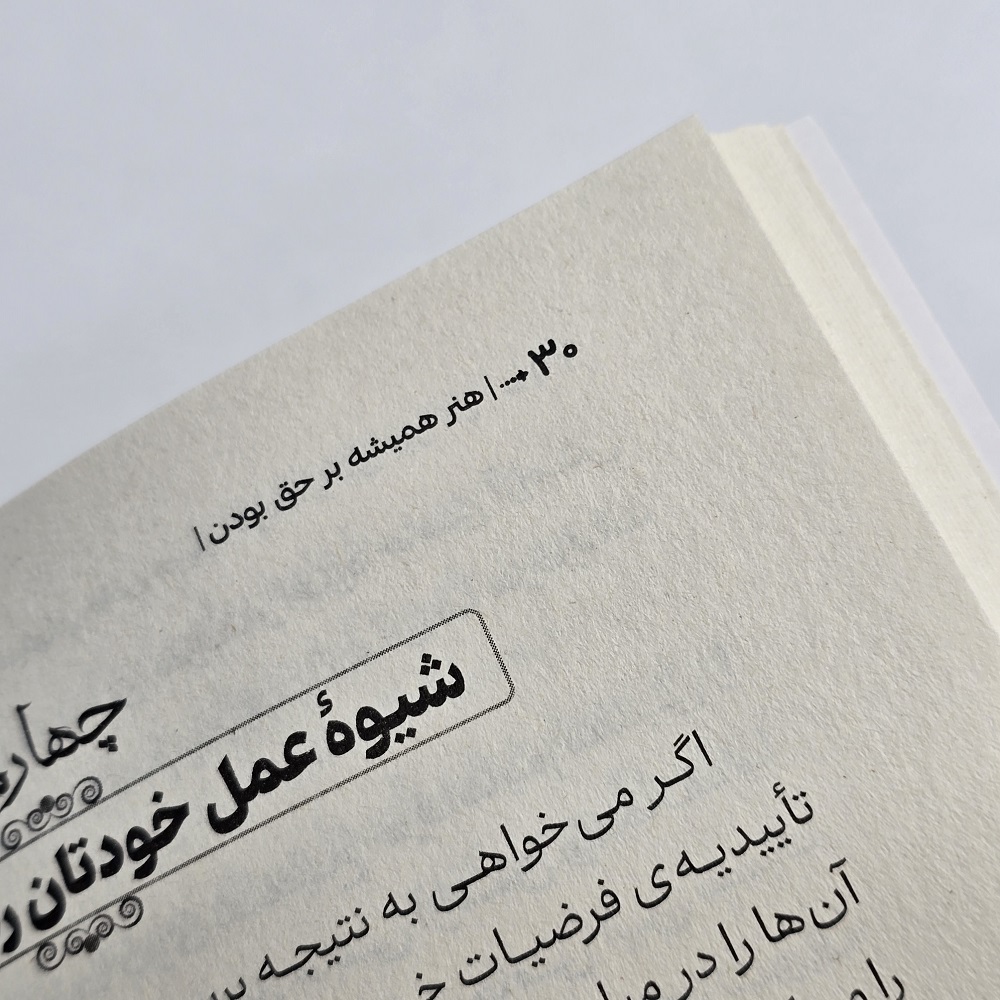 ۳۰ | هنر همیشه بر حق بودن |
شیوهٔ عمل خودتان
اگر می‌خواهی به نتیجه
تأییدیه‌ی فرضیات
آن‌ها را در
را